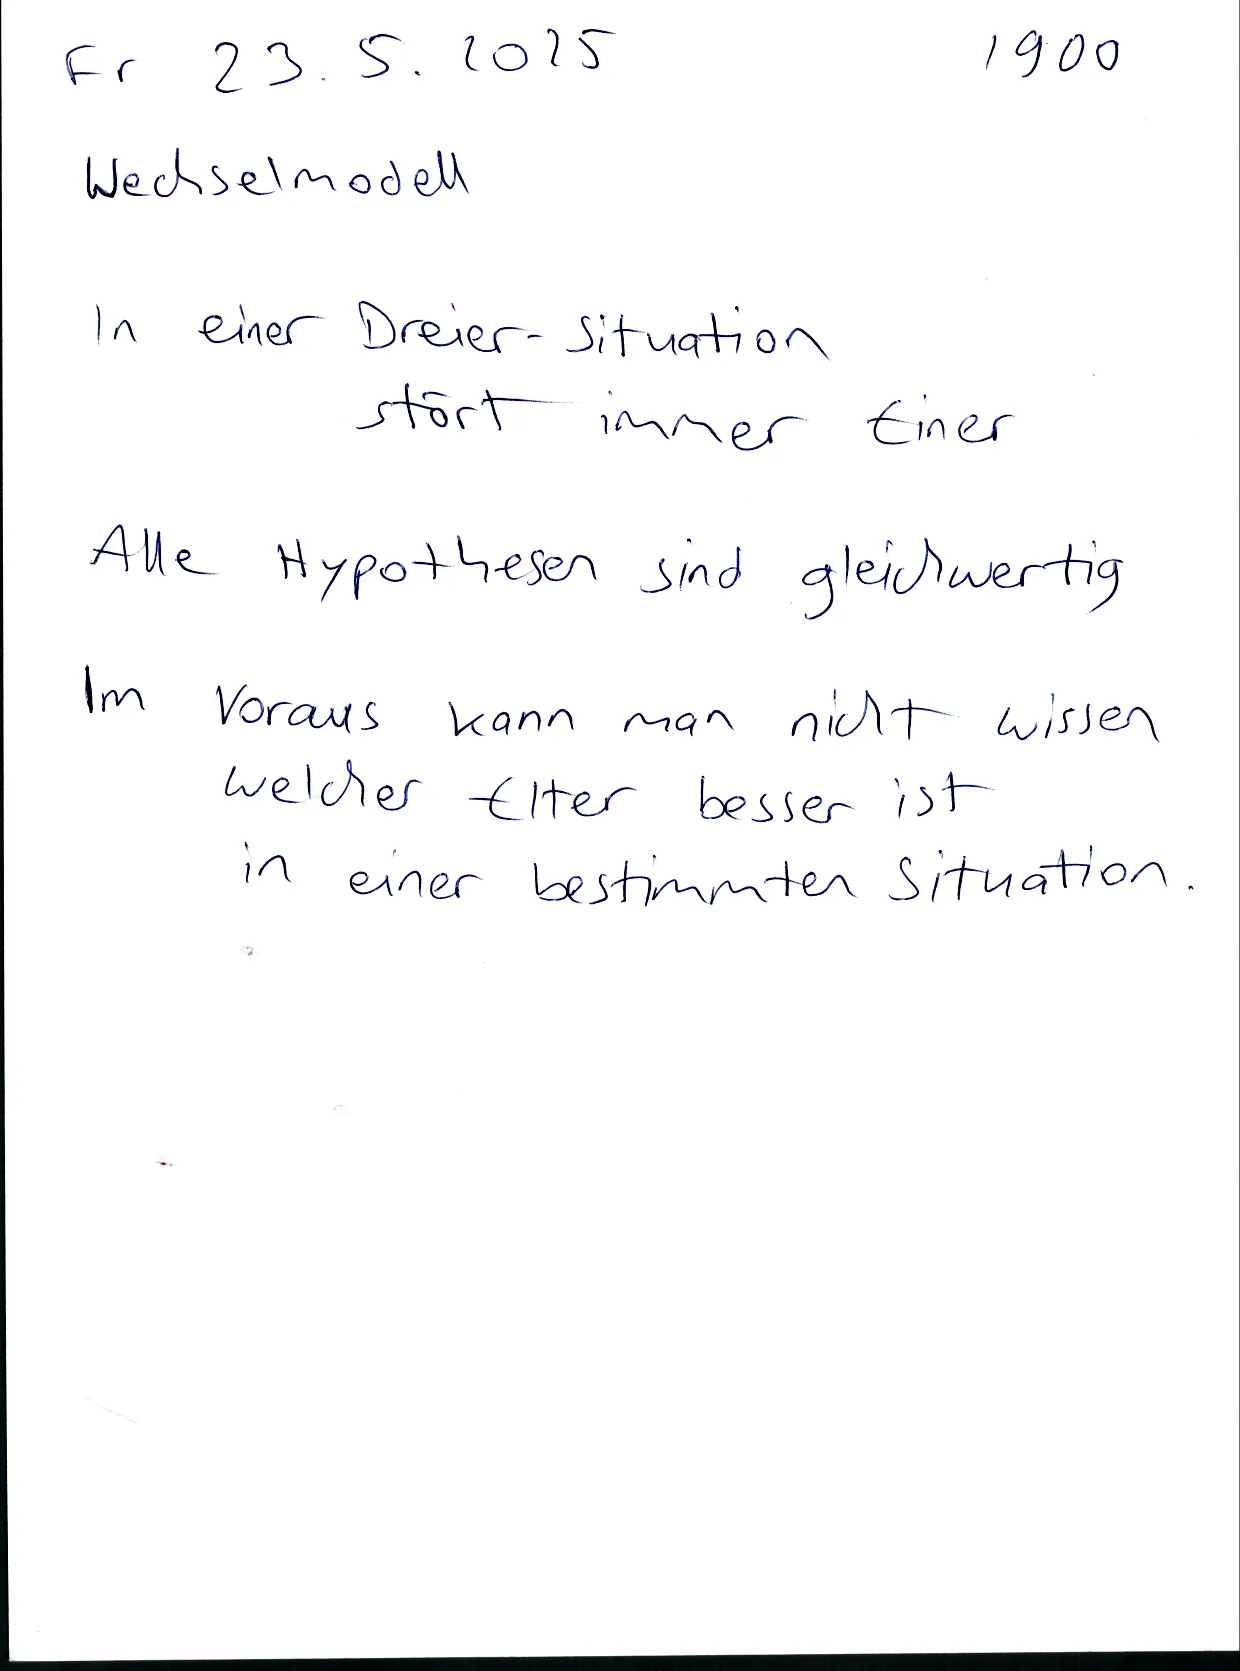 Fr 23.5.2025 1900
Wechselmodell
In einer Dreier-Situation
stört immer Einer
Alle Hypothesen sind gleichwertig
Im Voraus kann man nicht wissen
welcher Elter besser ist
in einer bestimmten Situation.